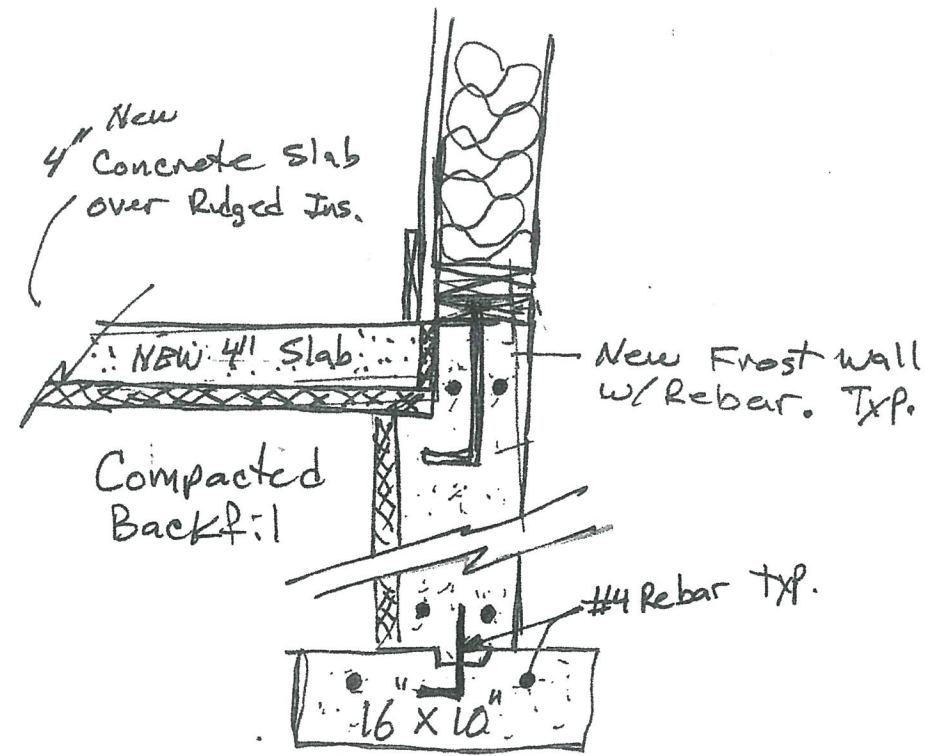 New
4" Concrete Slab
over Ridged Ins.
NEW 4" Slab
New Frost Wall
w/Rebar. Typ.
Compacted
Backfil
#4 Rebar Typ.
16" x 10"